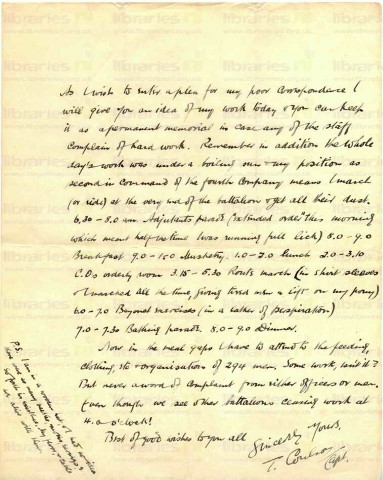 As I wish to enter a plea for my poor correspondence I
will give you an idea of my work today & you can keep
it as a permanent memorial in case any of the staff
complain of hard work. Remember in addition the whole
day's work was under a boiling sun & my position as
second in command of the fourth Company means I march
(or ride) at the very end of the battalion & get all their dust.
6.30 - 8.0 am. Adjutants parade ("extended order" this morning
which meant half the time I was running full lick) 8.0 - 9.0
Breakfast 9.0 - 1.0 Musketry. 1.0 - 2.0 Lunch 2.0 - 3.10
C.O's orderly room 3.15 - 5.30 Route march (in shirt sleeves
& I marched all the time, giving tired men a lift on my pony)
6.0 - 7.0 Bayonet exercises (in a lather of perspiration)
7.0 - 7.30 Bathing parade. 8.0 - 9.0 Dinner.
Now in the meal gaps I have to attend to the feeding,
clothing, etc & organisation of 294 men. Some work, isn't it?
But never a word of complaint from either officers or men.
Even though we see other battalions ceasing work at
4. o'clock!
Best of good wishes to you all
Sincerely Yours,
T. Coulson
Capt.
P.S.
libraries